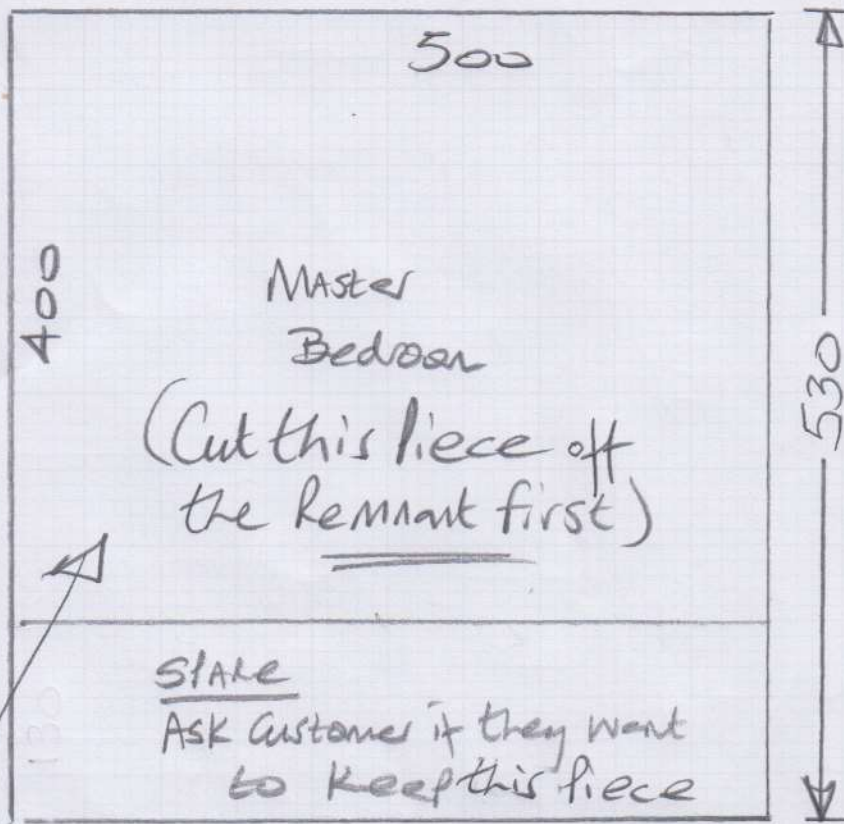 500
400
Master
Bedroom
(Cut this Piece off
the Remnant first)
530
130
SPARE
Ask Customer if they want
to keep this Piece